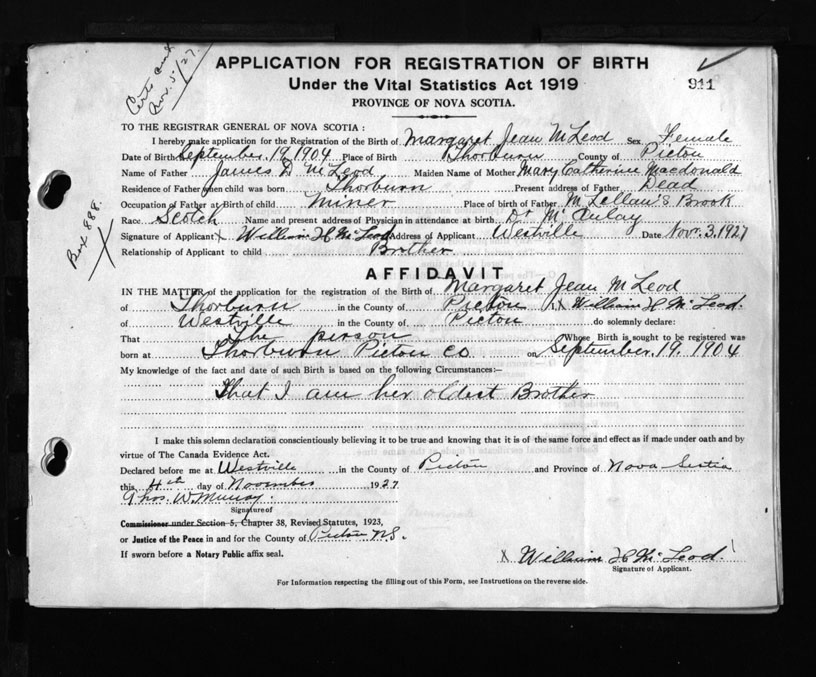 Certs and
Nov. 5/27.
APPLICATION FOR REGISTRATION OF BIRTH
Under the Vital Statistics Act 1919
911
PROVINCE OF NOVA SCOTIA.
TO THE REGISTRAR GENERAL OF NOVA SCOTIA :
I hereby make application for the Registration of the Birth of Margaret Jean McLeod Sex Female
Date of Birth September 19, 1904 Place of Birth Thorburn County of Pictou
Name of Father James D McLeod Maiden Name of Mother Mary Catherine Macdonald
Residence of Father when child was born Thorburn Present address of Father Dead
Occupation of Father at Birth of child Miner Place of birth of Father McLellan's Brook
Race Scotch Name and present address of Physician in attendance at birth Dr McAulay
Signature of Applicant X William H McLeod Address of Applicant Westville Date Nov. 3, 1927
Relationship of Applicant to child Brother
Box 888.
AFFIDAVIT
IN THE MATTER of the application for the registration of the Birth of Margaret Jean McLeod
of Thorburn in the County of Pictou I, X William H McLeod.
of Westville in the County of Pictou do solemnly declare:
That The person Whose Birth is sought to be registered was
born at Thorburn Pictou Co on September. 19. 1904
My knowledge of the fact and date of such Birth is based on the following Circumstances:—
That I am her oldest Brother
I make this solemn declaration conscientiously believing it to be true and knowing that it is of the same force and effect as if made under oath and by
virtue of The Canada Evidence Act.
Declared before me at Westville in the County of Pictou and Province of Nova Scotia
this 4th day of November 1927
Thos. W. Murray.
Signature of
Commissioner under Section 5, Chapter 38, Revised Statutes, 1923,
or Justice of the Peace in and for the County of Pictou N.S.
If sworn before a Notary Public affix seal.
X William H McLeod.
Signature of Applicant.
For Information respecting the filling out of this Form, see Instructions on the reverse side.